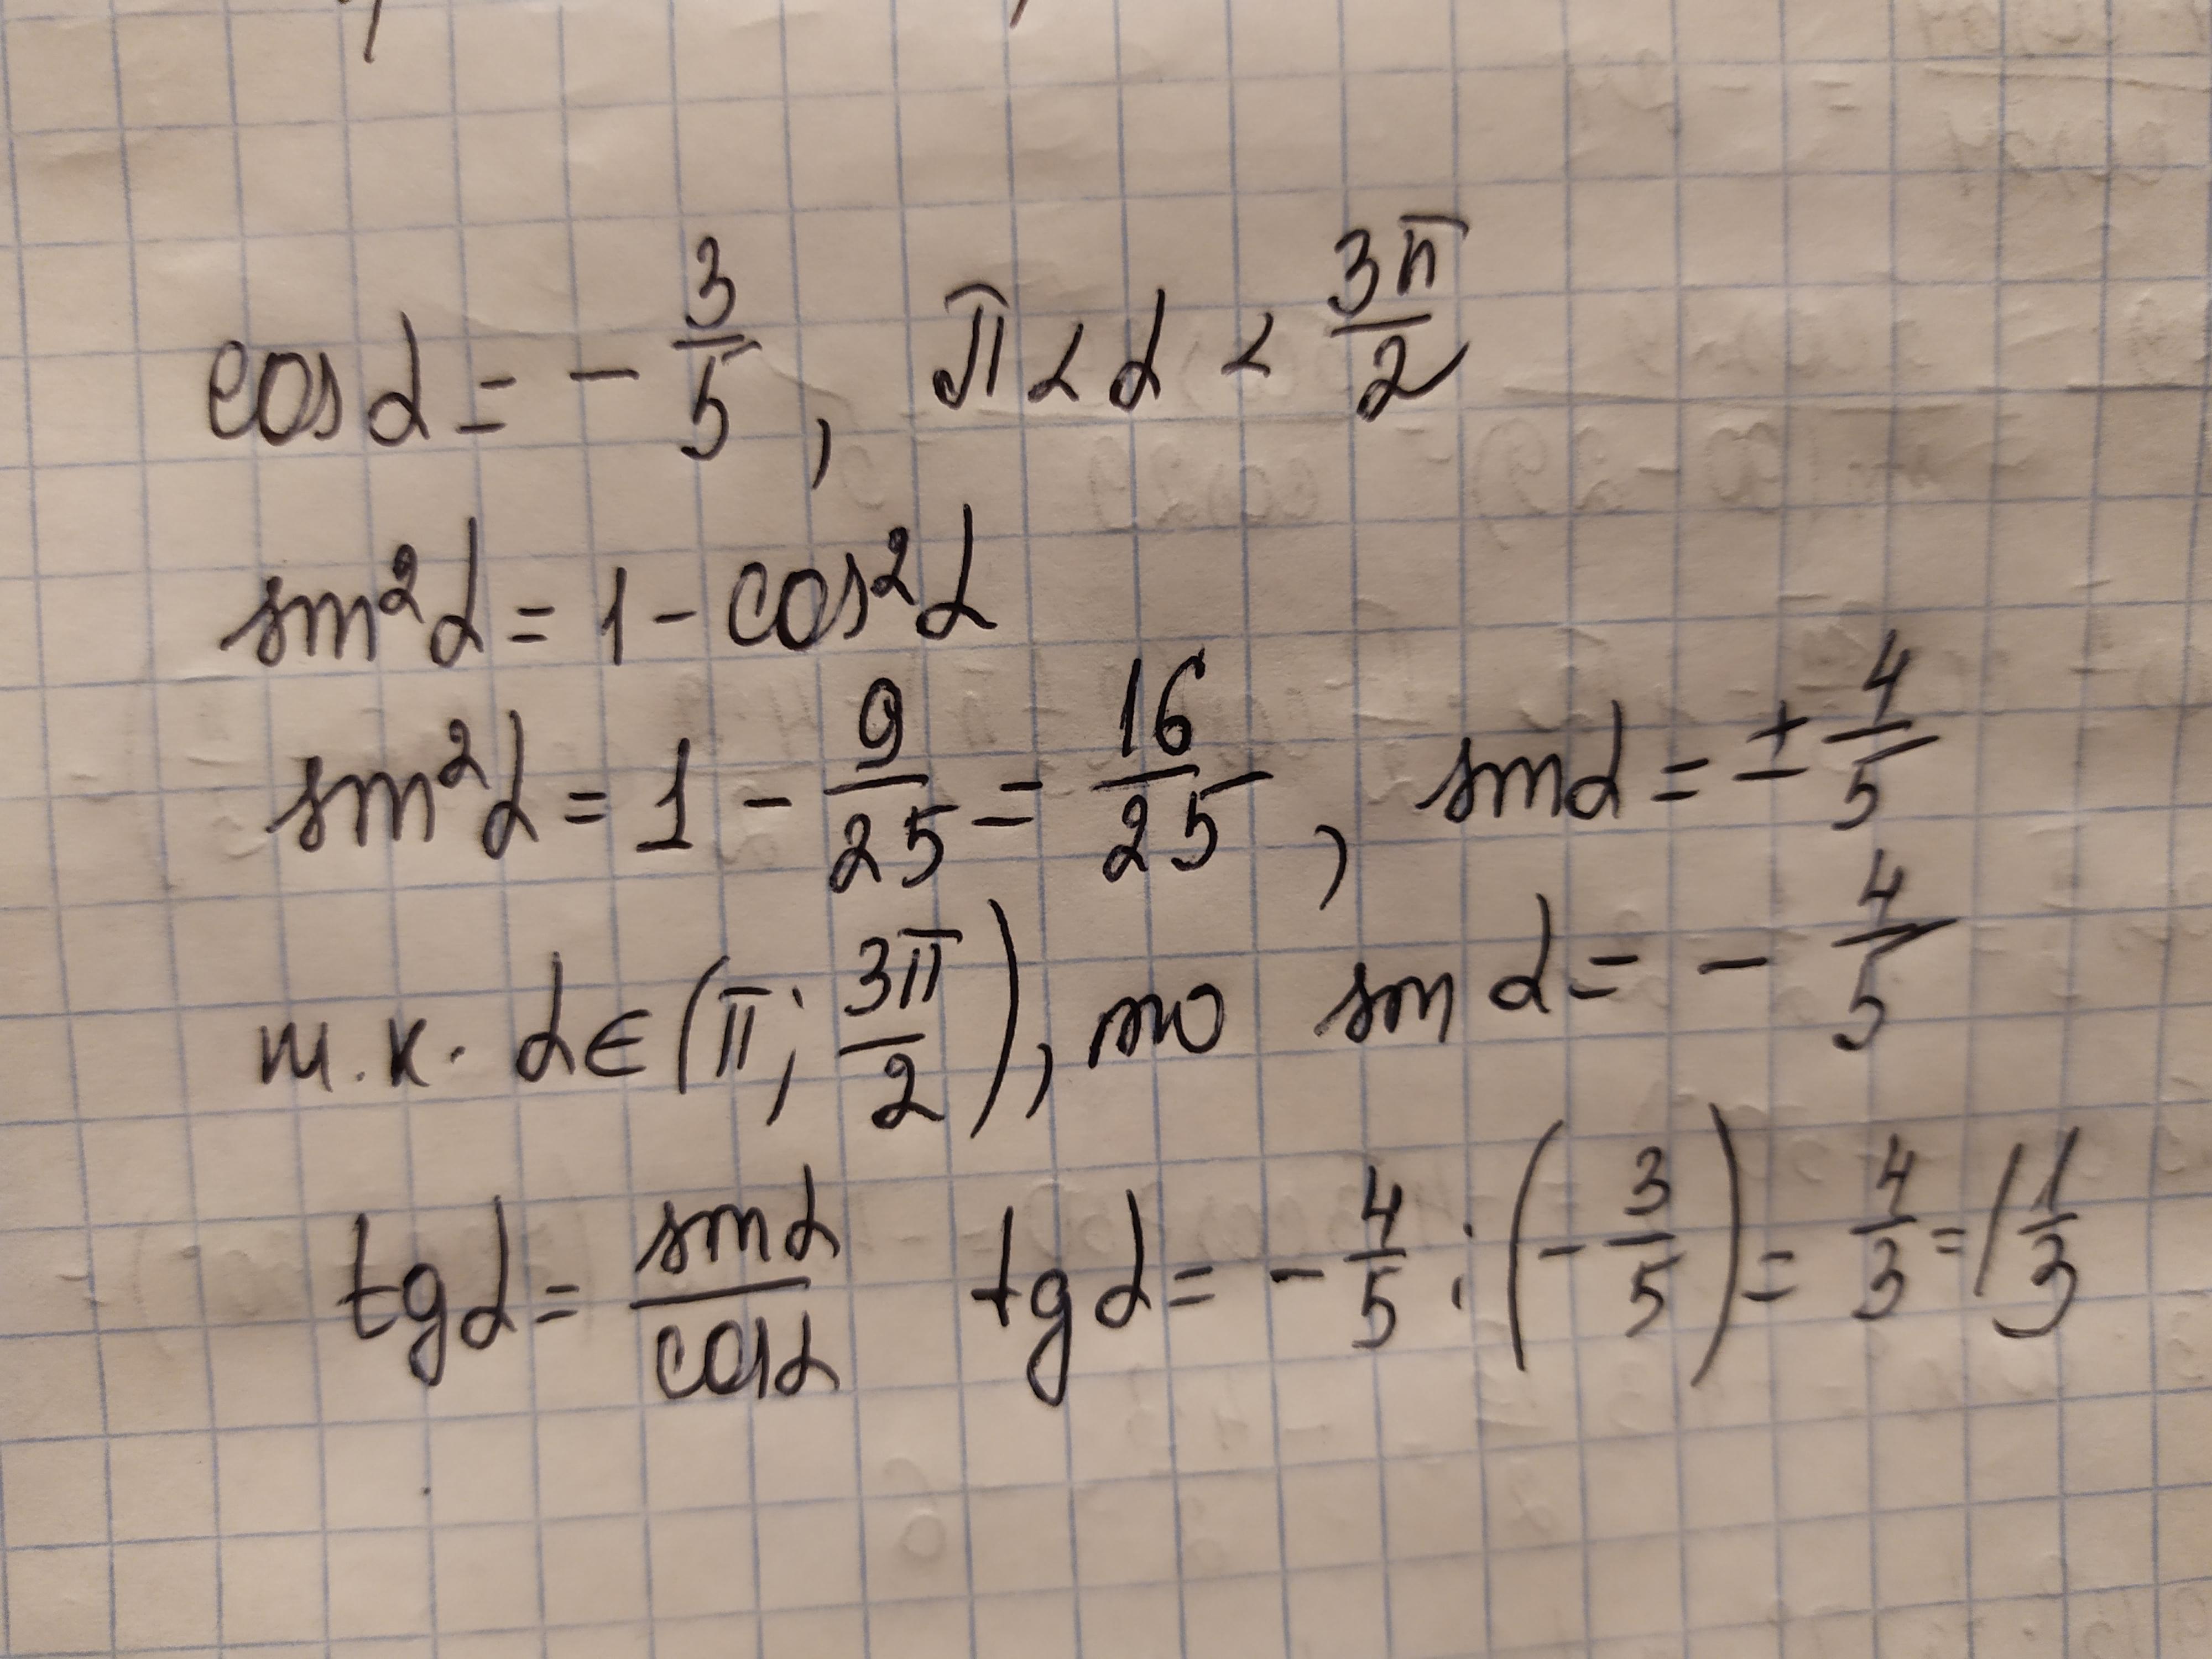 cos α = - 3/5, π < α < 3π/2
sin²α = 1 - cos²α
sin²α = 1 - 9/25 = 16/25, sin α = ± 4/5
т.к. α ∈ (π; 3π/2), то sin α = - 4/5
tg α = sin α/cos α tg α = - 4/5 : (- 3/5) = 4/3 = 1 1/3